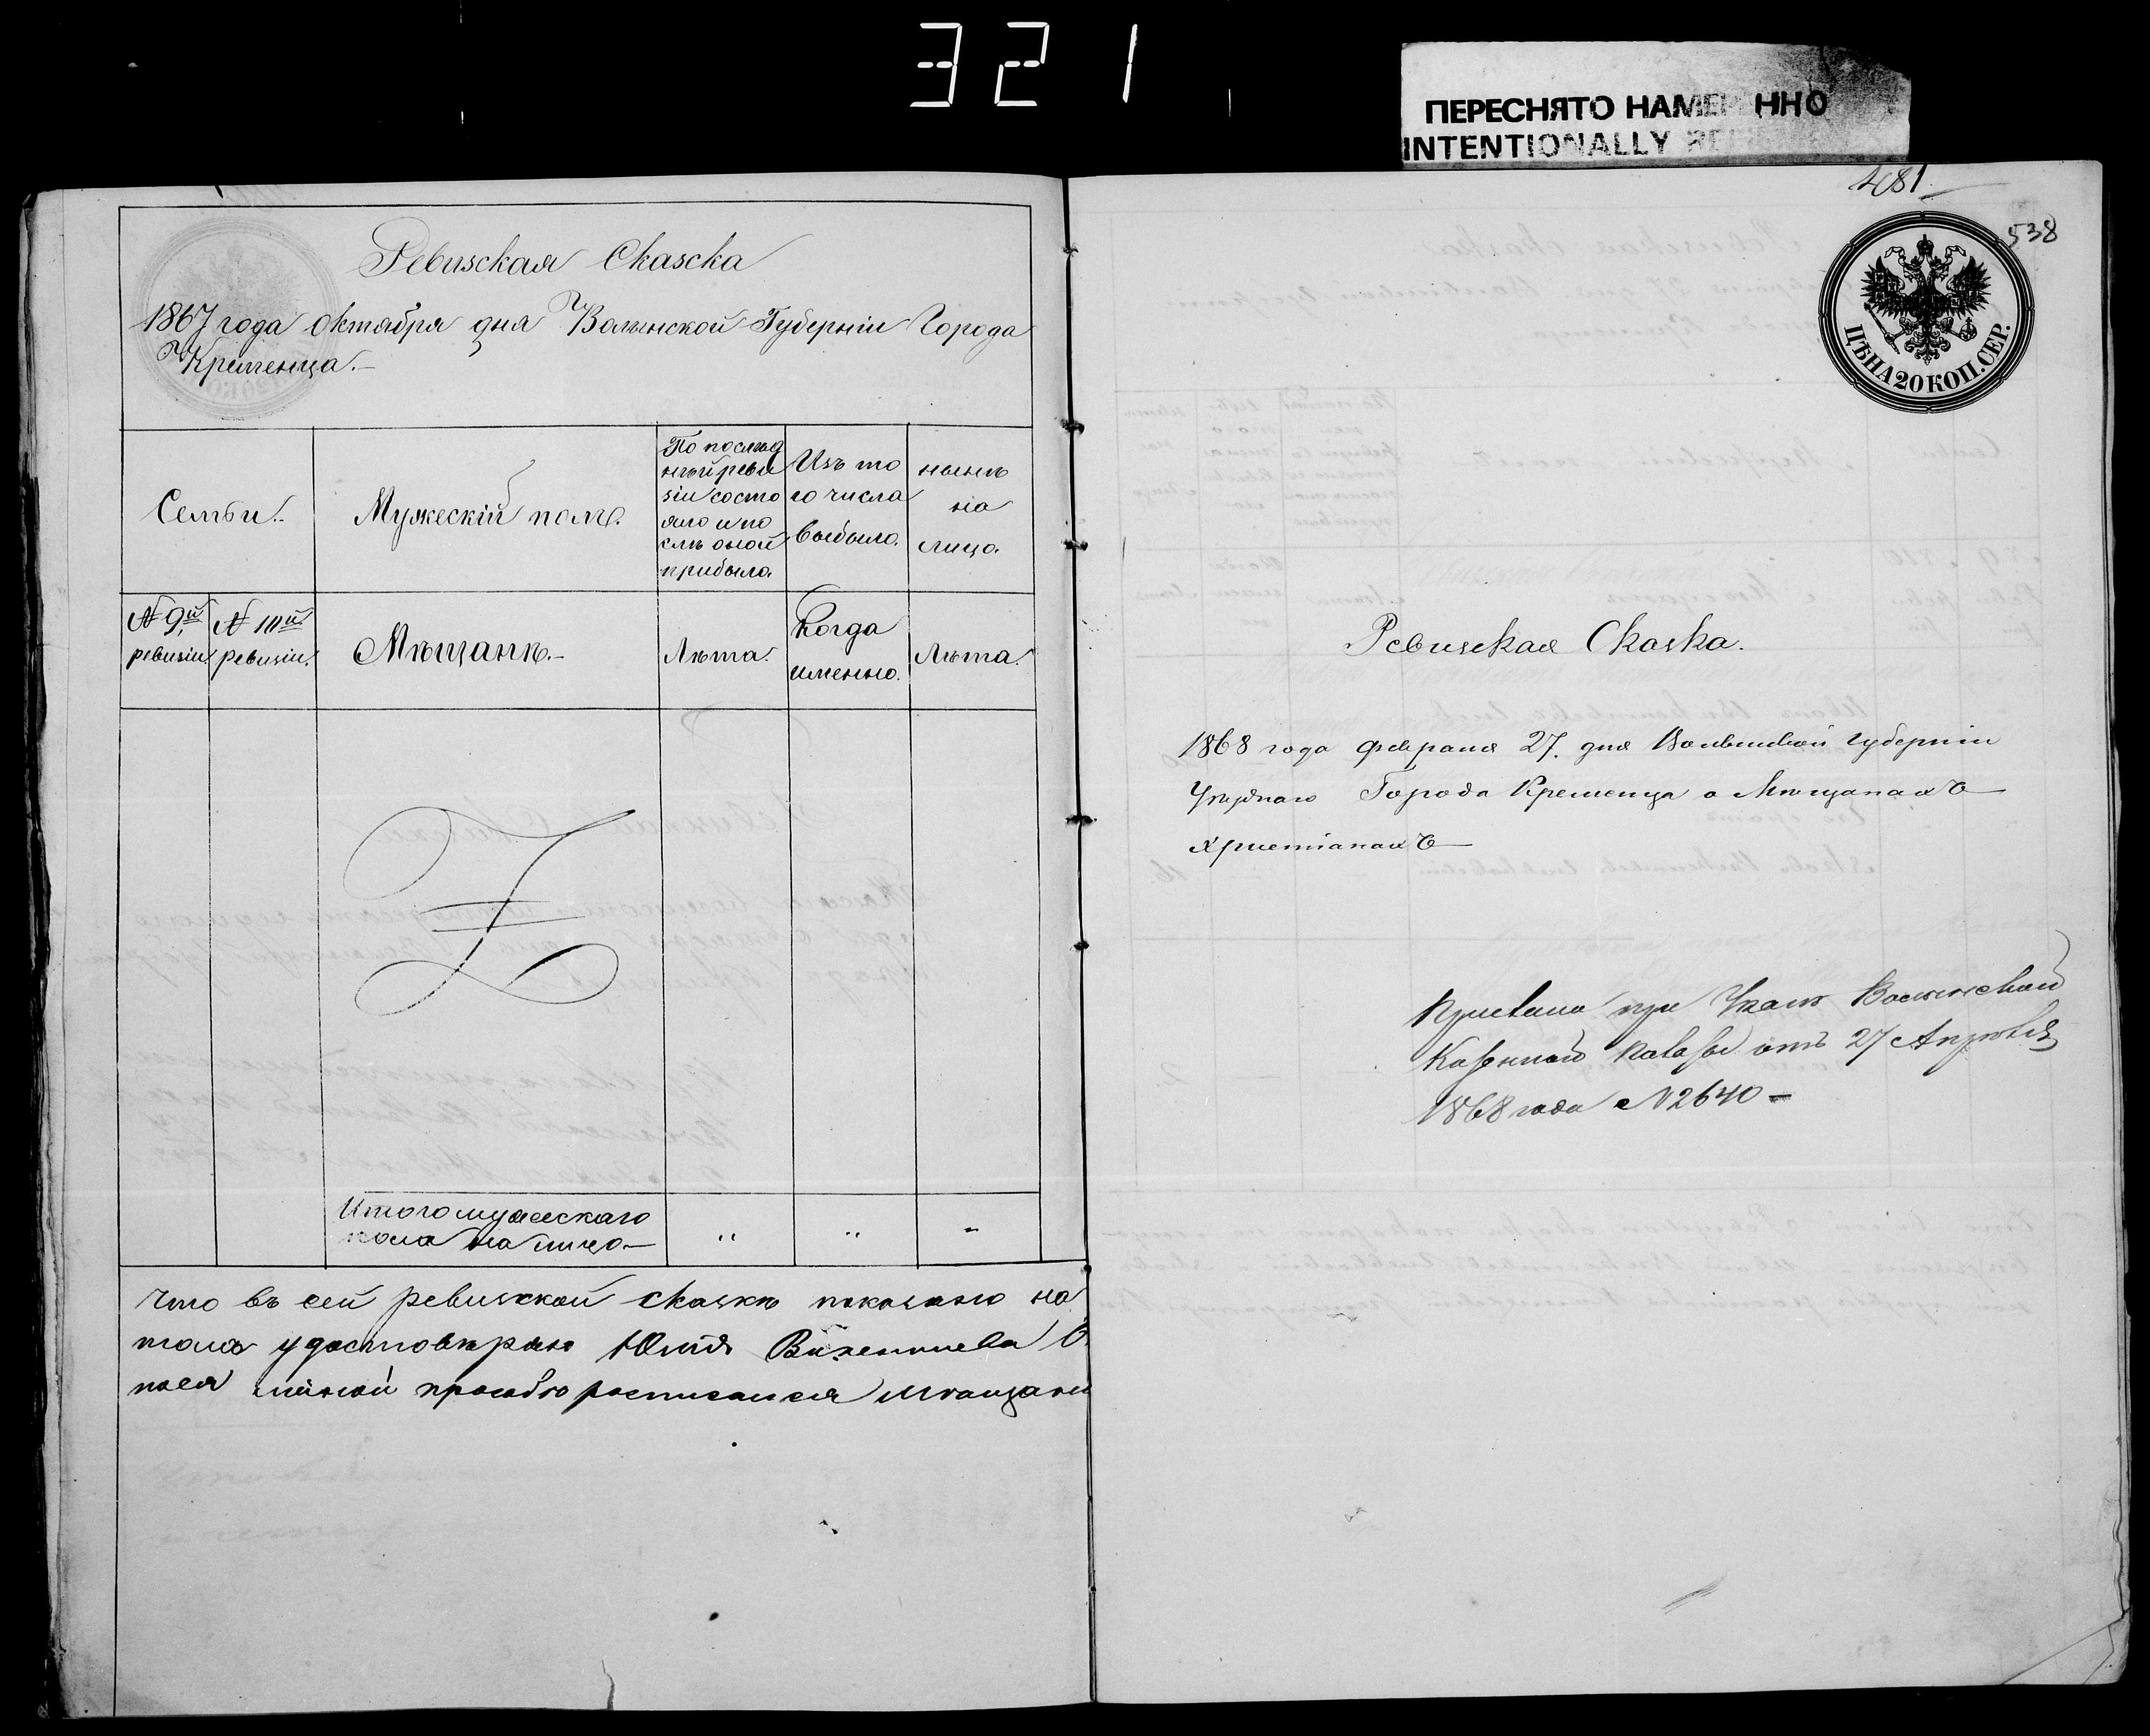 321
ПЕРЕСНЯТО НАМЕР ННО
INTENTIONALLY RE
Ревизская Сказска
1867 года октября дня Волынской Губернiи Города
Кременца.-
Семьи.
Мужескiй полъ.
По послѣд
нѣй реви
зiи состо
яло и по
слѣ оной
прибыло.
Изъ то
го числа
выбыло.
нынѣ
на
лицо.
№ 9й
ревизiи.
№ 10й
ревизiи.
Мѣщанѣ.-
Лѣта.
Когда
именно.
Лѣта.
Итого мужескаго
пола на лицо-
" " -
Что въ сей ревизской сказкѣ показано на
удостовѣряю Викентiева
прозьбою росписался мѣщани
481
538
ЦѢНА 20 КОП. СЕР.
Ревизская Сказка.
1868 года февраля 27. дня Волынской губернiи
Уѣзднаго Города Кременца о Мѣщанахъ
Христiанахъ
Прислана при Указѣ Волынской
Казенной Палаты отъ 27 Апрѣля
1868 года №2640-